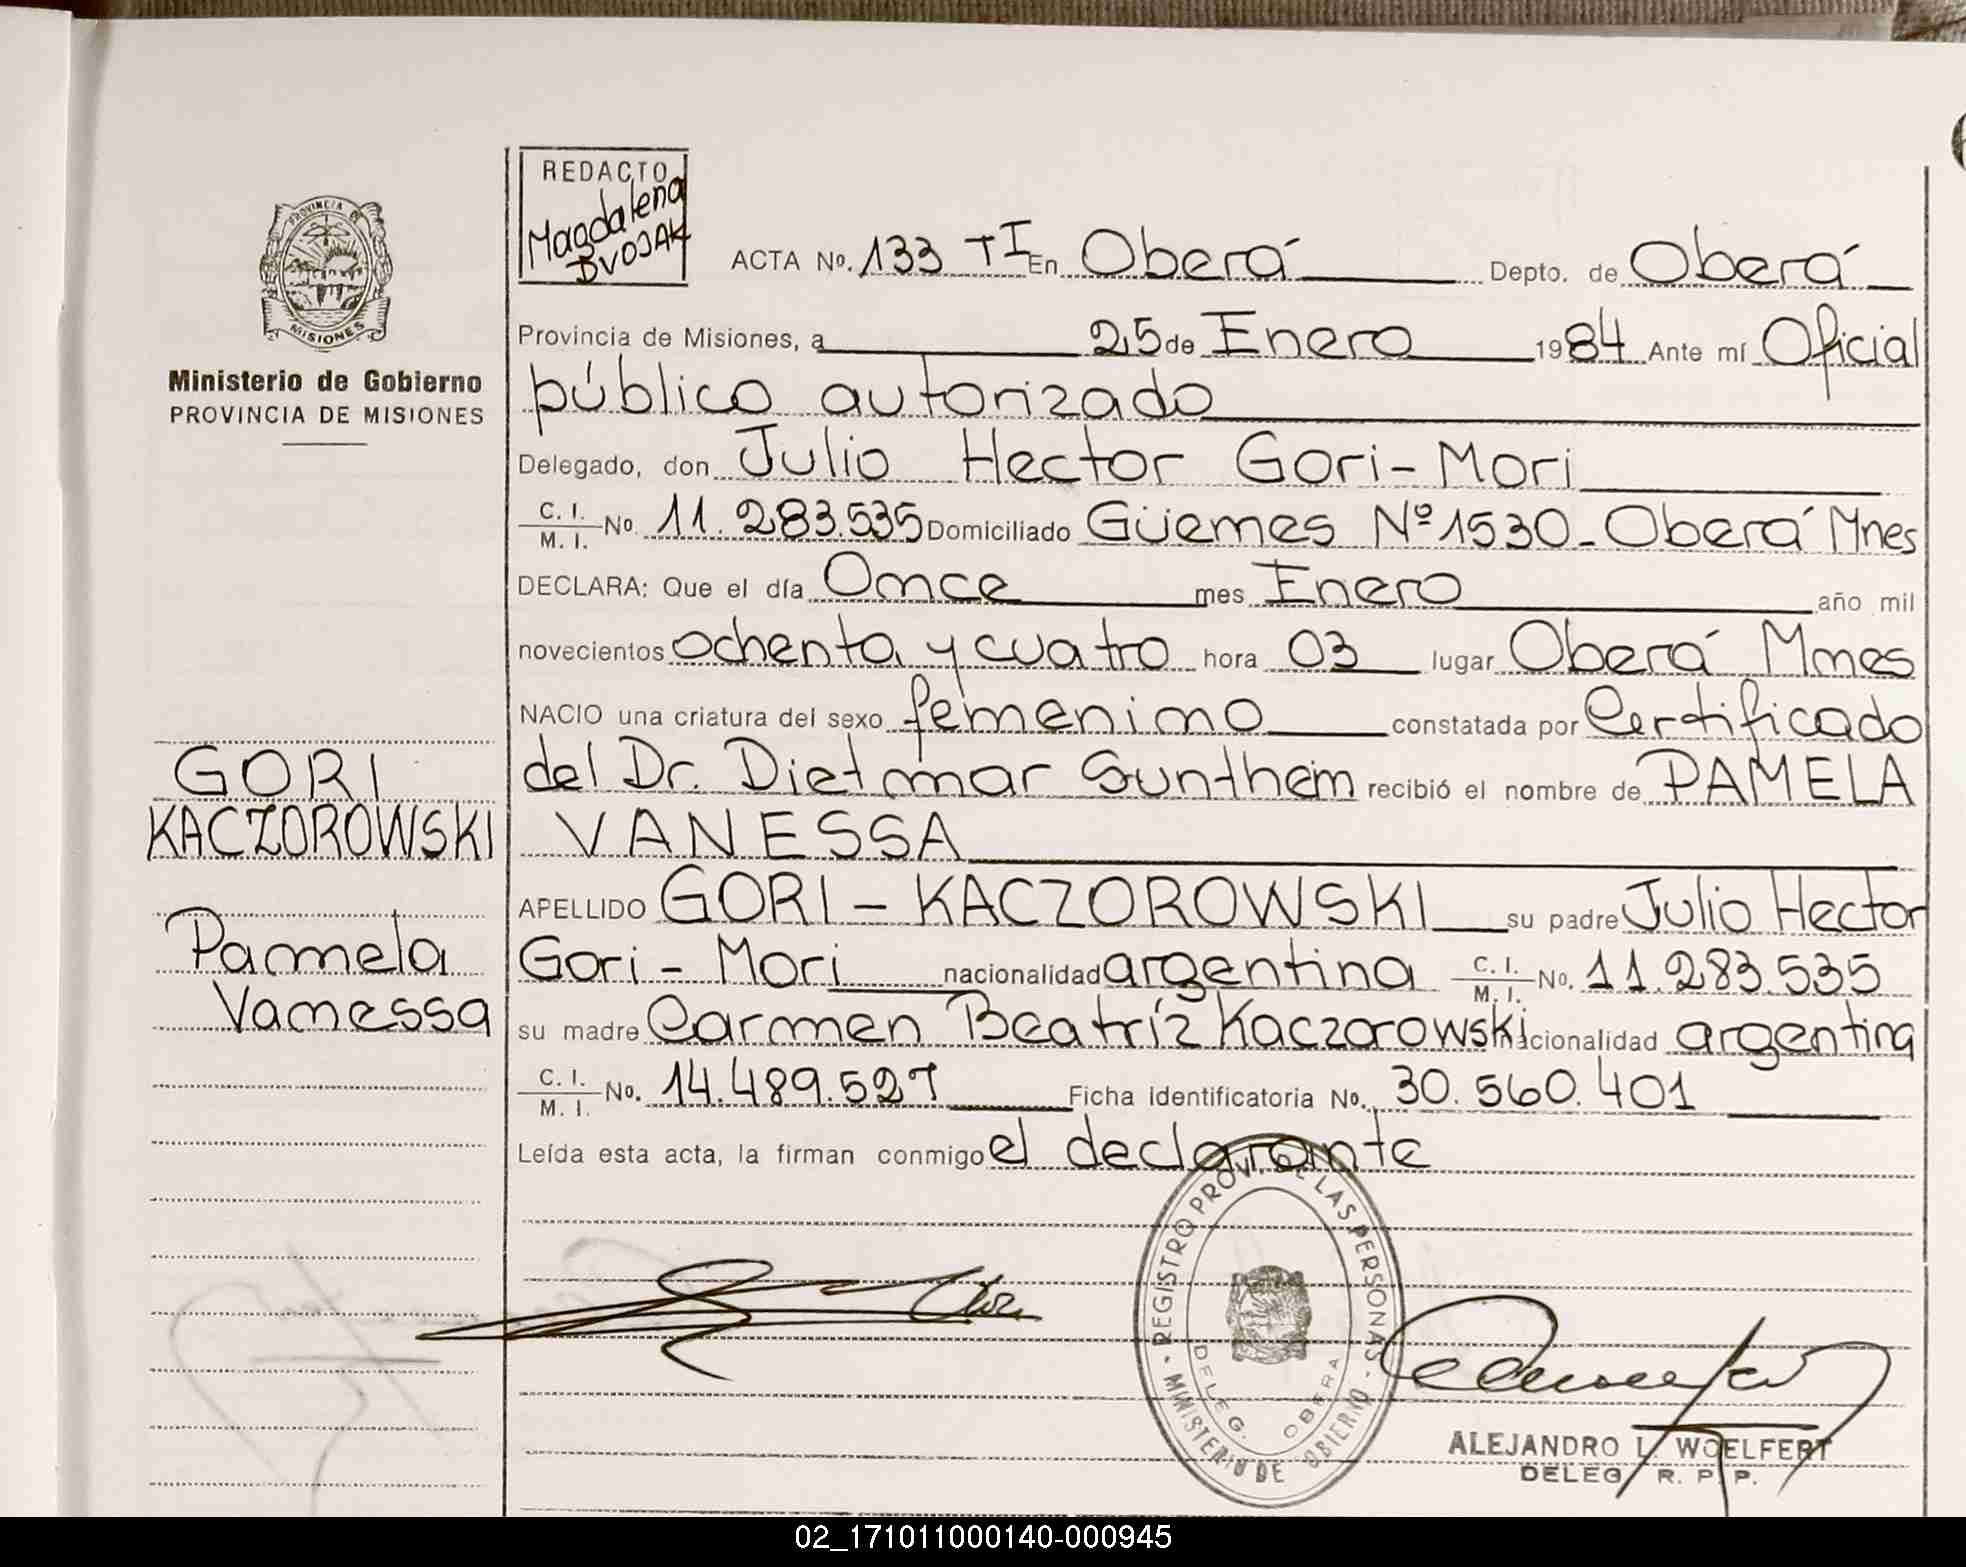 REDACTO
Magdalena
BVOJAK
PROVINCIA DE
MISIONES
Ministerio de Gobierno
PROVINCIA DE MISIONES
ACTA No. 133 TI En Oberá Depto. de Oberá
Provincia de Misiones, a 25 de Enero 1984 Ante mí Oficial
público autorizado
Delegado, don Julio Hector Gori-Mori
C. I. / M. I. No. 11.283.535 Domiciliado Güemes Nº 1530 - Oberá Mnes
DECLARA: Que el día Once mes Enero año mil
novecientos ochenta y cuatro hora 03 lugar Oberá Mnes
NACIO una criatura del sexo femenino constatada por Certificado
del Dr. Dietmar Sunthein recibió el nombre de PAMELA
VANESSA
APELLIDO GORI - KACZOROWSKI su padre Julio Hector
Gori - Mori nacionalidad argentina C. I. / M. I. No. 11.283.535
su madre Carmen Beatríz Kaczorowski nacionalidad argentina
C. I. / M. I. No. 14.489.527 Ficha Identificatoria No. 30.560.401
Leída esta acta, la firman conmigo el declarante
GORI
KACZOROWSKI
Pamela
Vanessa
REGISTRO PROV. DE LAS PERSONAS
MINISTERIO DE GOBIERNO
DELEG. OBERA
ALEJANDRO L. WOELFERT
DELEG. R. P. P.
02_171011000140-000945